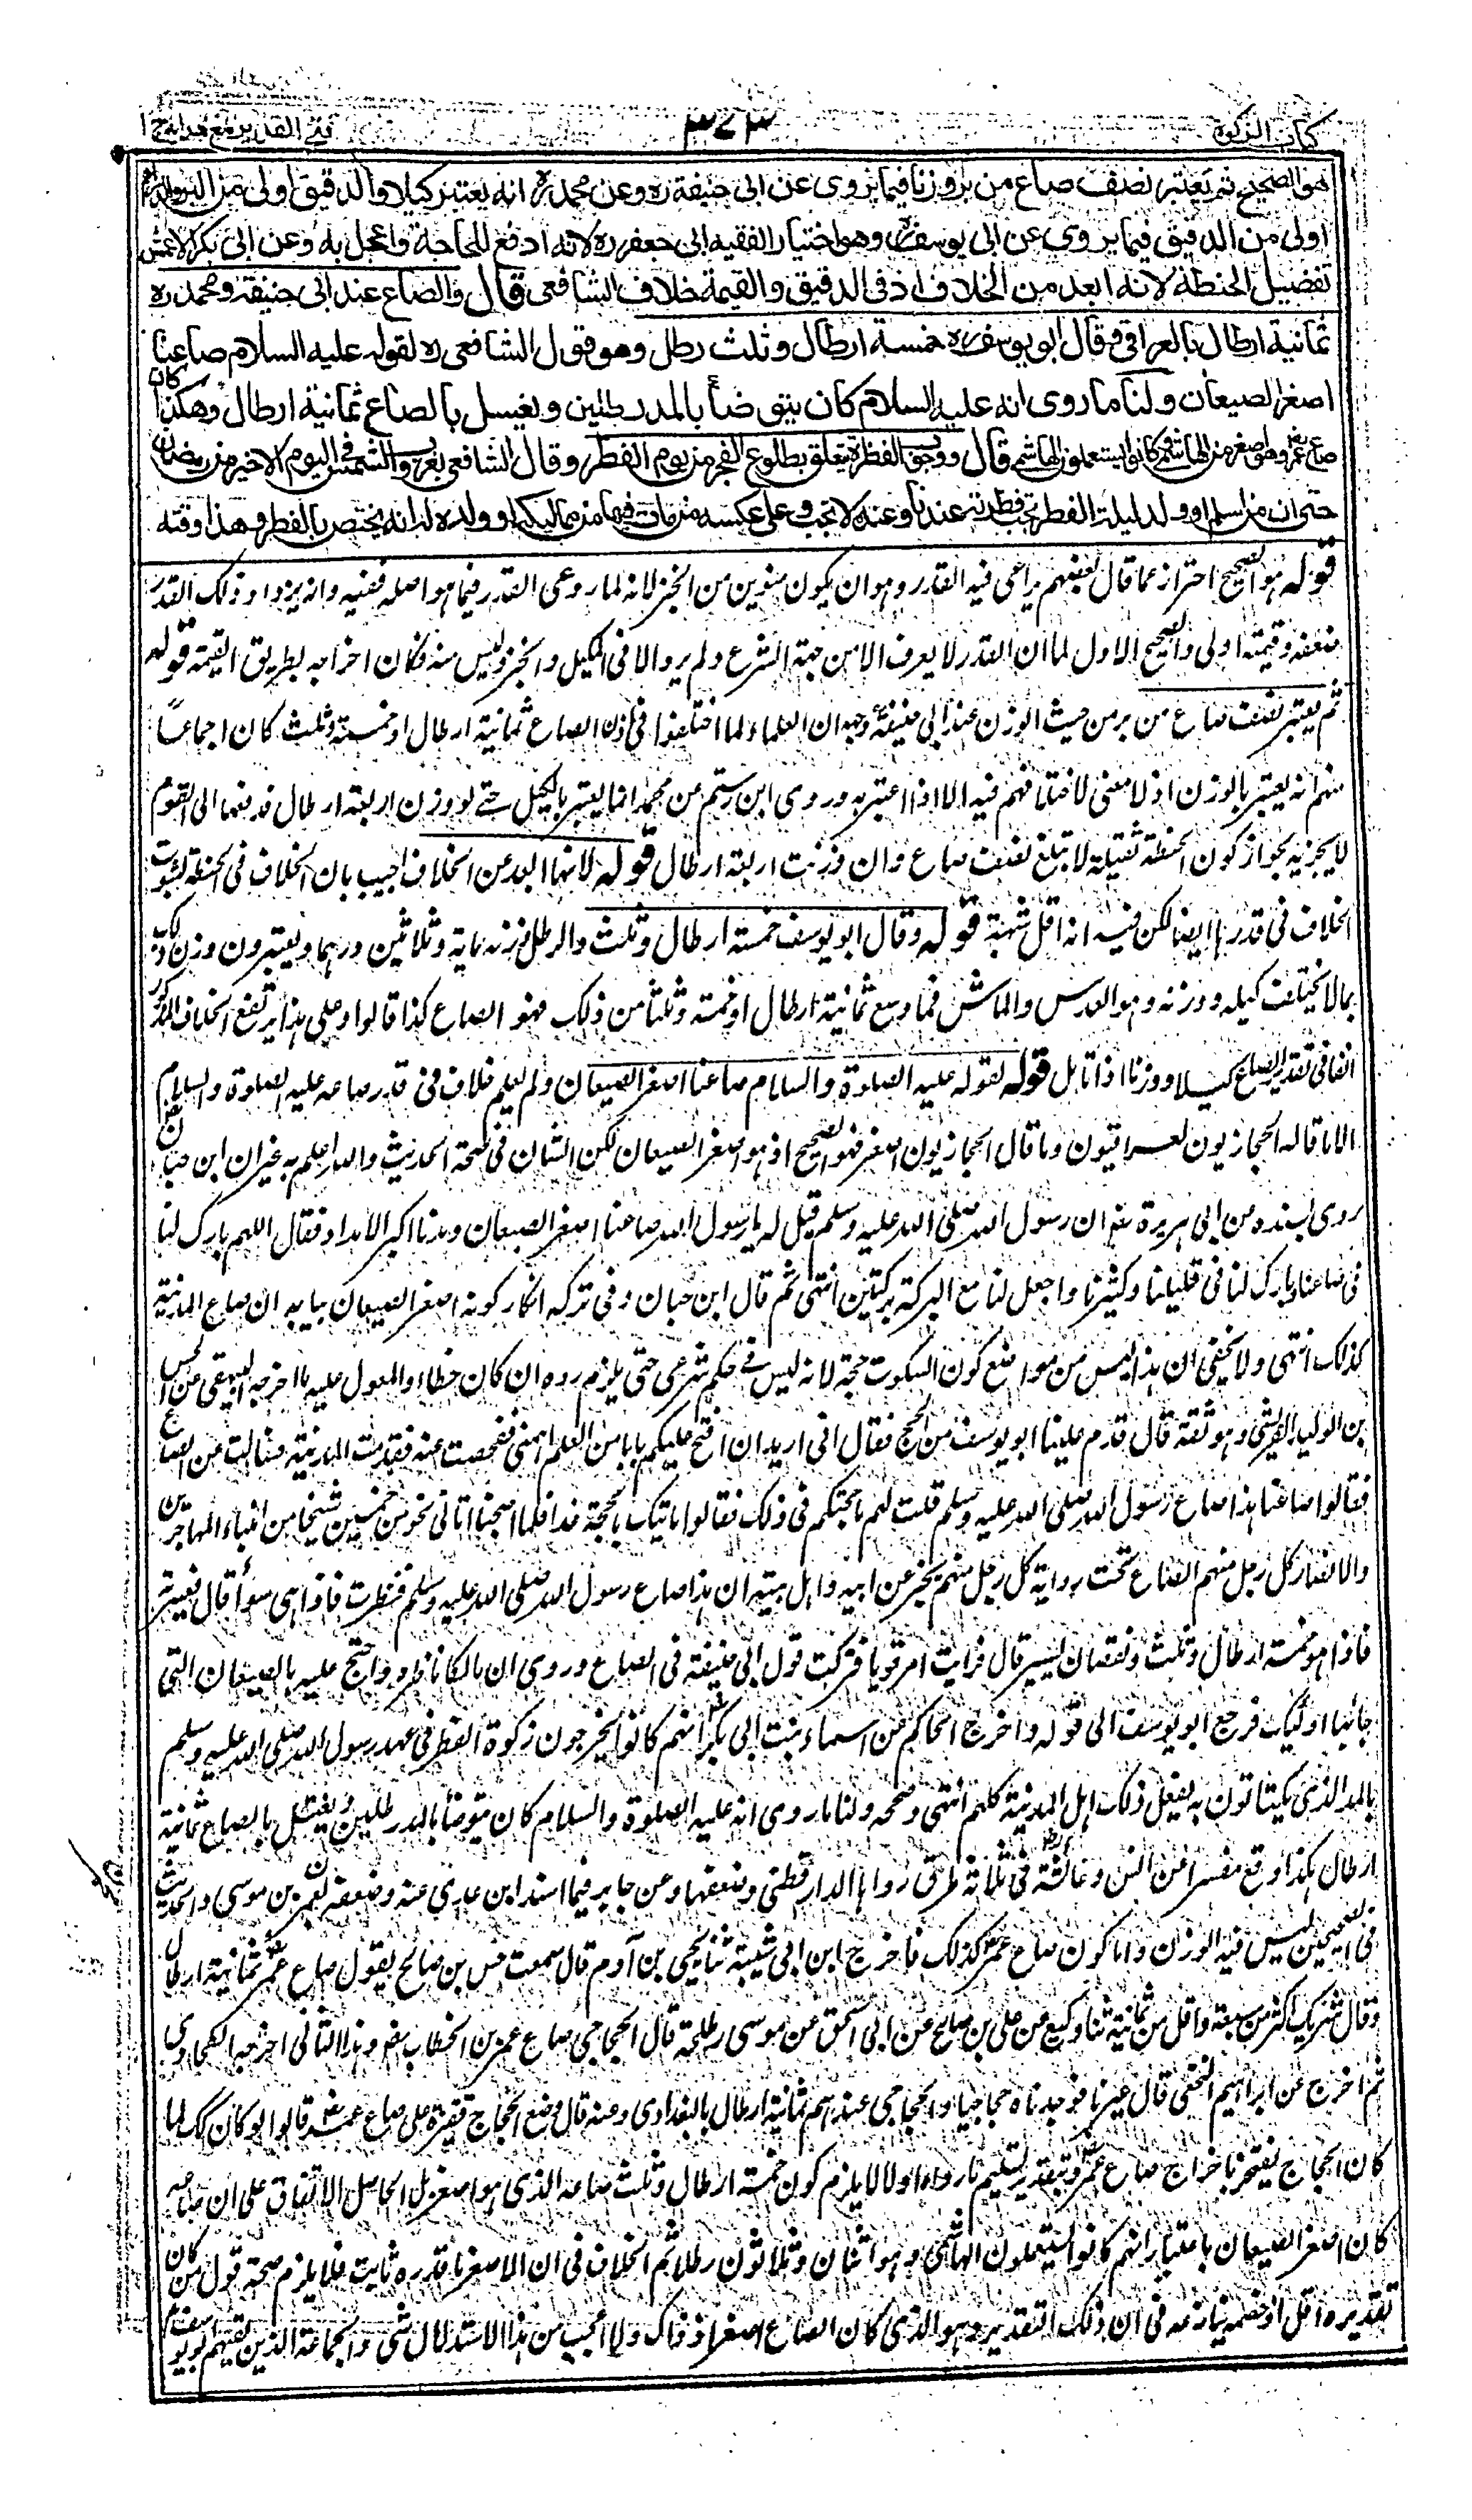 كتاب الزكوة
٣٧٣
فتح القدير مع هداية ج ١
هو الصحيح ثم يعتبر نصف صاع من بر وزنا فيما يروى عن ابى حنيفة ره وعن محمد ره انه يعتبر كيلا والدقيق اولى من البر والدراهم
اولى من الدقيق فيما يروى عن ابى يوسف ره وهو اختيار الفقيه ابى جعفر ره لانه ادفع للحاجة واعجل به وعن ابى بكر الاعمش
تفضيل الحنطة لانه ابعد من الخلاف اذ فى الدقيق والقيمة خلاف الشافعى قال والصاع عند ابى حنيفة ومحمد ره
ثمانية ارطال بالعراقى وقال ابو يوسف ره خمسة ارطال وثلث رطل وهو قول الشافعى ره لقوله عليه السلام صاعنا
اصغر الصيعان ولنا ما روى انه عليه السلام كان يتوضأ بالمد رطلين ويغتسل بالصاع ثمانية ارطال وهكذا كان
صاع عمر وهو اصغر من الهاشمى وكانوا يستعملون الهاشمى قال ووجوب الفطرة يتعلق بطلوع الفجر من يوم الفطر وقال الشافعى بغروب الشمس فى اليوم الاخير من رمضان
حتى ان من اسلم او ولد ليلة الفطر تجب فطرته عندنا وعنده لا تجب وعلى عكسه من مات فيها من مماليكه او ولده له انه يختص بالفطر وهذا وقته
قوله هو الصحيح احتراز عما قال بعضهم يراعى فيه القدر وهو ان يكون منوين من الخبز لانه لما روعى القدر فيما هو اصله ففيه وانه يزداد ذلك القدر
صنعة وقيمة اولى والصحيح الاول لما ان القدر لا يعرف الا من جهة الشرع ولم يرد الا فى المكيل والخبز ليس منه فكان اخراجه بطريق القيمة قوله
ثم يعتبر نصف صاع من بر من حيث الوزن عند ابى حنيفة وجهه ان العلماء لما اختلفوا فى ان الصاع ثمانية ارطال او خمسة وثلث كان اجماعا
منهم انه يعتبر بالوزن اذ لا معنى لاختلافهم فيه الا اذا اعتبر به وروى ابن رستم عن محمد انما يعتبر بالكيل حتے لو وزن اربعة ارطال فدفعها الى القوم
لا يجزيه لجواز كون الحنطة ثقيلة لا تبلغ نصف صاع وان وزنت اربعة ارطال قوله لانها ابعد عن الخلاف اجيب بان الخلاف فى الحنطة لثبوت
الخلاف فى قدرها ايضا لكن فيه انه اقل شبهة قوله وقال ابو يوسف خمسة ارطال وثلث والرطل زنة مائة وثلاثين درهما ويعتبرون وزن ذلك
بما لا يختلف كيله ووزنه وهو العدس والماش فما وسع ثمانية ارطال او خمسة وثلثا من ذلك فهو الصاع كذا قالوا وعلى هذا يرتفع الخلاف المذكور
آنفا فى تقدير الصاع كيلا ووزنا اذا تأمل قوله لقوله عليه الصلوة والسلام صاعنا اصغر الصيعان ولم يعلم خلاف فى قدر صاعه عليه الصلوة والسلام
الا ما قاله الحجازيون والعراقيون وما قال الحجازيون اصغر فهو الصحيح اذ هو اصغر الصيعان لكن الشان فى صحة الحديث والله اعلم به غير ان ابن حبان
روى بسنده من ابى هريرة رض ان رسول الله صلى الله عليه وسلم قيل له يا رسول الله صاعنا اصغر الصيعان ومدنا اكبر الامداد فقال اللهم بارك لنا
فى صاعنا وبارك لنا فى قليلنا وكثيرنا واجعل لنا مع البركة بركتين انتهى ثم قال ابن حبان وفى تركه انكار كونه اصغر الصيعان بيان ان صاع المدينة
كذلك انتهى ولا يخفى ان هذا ليس من مواضع كون السكوت حجة لانه ليس فے حكم شرعى حتى يلزم رده ان كان خطأ والمعول عليه ما اخرجه البيهقى عن الحسين
بن الوليد القرشى وهو ثقة قال قدم علينا ابو يوسف من الحج فقال انى اريد ان افتح عليكم بابا من العلم اهمنى ففحصت عنه فقدمت المدينة فسالت عن الصاع
فقالوا صاعنا هذا صاع رسول الله صلى الله عليه وسلم قلت لهم ما حجتكم فى ذلك فقالوا نأتيك بالحجة غدا فلما اصبحنا اتانى نحو من خمسين شيخا من ابناء المهاجرين
والانصار كل رجل منهم الصاع تحت ردائه كل رجل منهم يخبر عن ابيه واهل بيته ان هذا صاع رسول الله صلى الله عليه وسلم فنظرت فاذا هى سواء قال فعيرته
فاذا هو خمسة ارطال وثلث ونقصان يسير قال فرايت امرا قويا فتركت قول ابى حنيفة فى الصاع وروى ان مالكا ناظره واحتج عليه بالصيعان التى
جاء بها اولئك فرجع ابو يوسف الى قوله واخرج الحاكم عن اسماء بنت ابى بكر انهم كانوا يخرجون زكوة الفطر فى عهد رسول الله صلى الله عليه وسلم
بالمد الذى يقتاتون به يفعل ذلك اهل المدينة كلهم انتهى وصححه ولنا ما روى انه عليه الصلوة والسلام كان يتوضأ بالمد رطلين ويغتسل بالصاع ثمانية
ارطال هكذا وقع مفسرا عن انس وعائشة فى ثلاثة طرق رواها الدارقطنى وضعفها وعن جابر فيما اسند ابن عدى عنه وضعفه بعمر بن موسى والحديث
فى الصحيحين ليس فيه الوزن واما كون صاع عمر كذلك فاخرج ابن ابى شيبة ثنا يحيى بن آدم قال سمعت حسن بن صالح يقول صاع عمر ثمانية ارطال
وقال شريك اكثر من سبعة واقل من ثمانية ثنا وكيع عن على بن صالح عن ابى اسحق عن موسى بن طلحة قال الحجاجى صاع عمر بن الخطاب رض وهذا الثانى اخرجه الطحاوى
ثم اخرج عن ابراهيم النخعى قال عيرنا فوجدناه حجاجيا والحجاجى عندهم ثمانية ارطال بالبغدادى وعنه قال وضع الحجاج قفيزه على صاع عمر قالوا لو كان كك لما
كان الحجاج يفتخر باخراج صاع عمر وبتقدير تسليم ما رواه اولا لا يلزم كون خمسة ارطال وثلث صاعه الذى هو اصغر بل الحاصل الاتفاق على ان صاعه
كان اصغر الصيعان باعتبار انهم كانوا يستعملون الهاشمى وهو اثنان وثلاثون رطلا ثم الخلاف فى ان الاصغر ما قدره ثابت فلا يلزم صحة قول من كان
تقديره اقل اذ خصمه ينازعه فى ان ذلك التقدير هو الذى كان الصاع اصغر اذ ذاك ولا اعجب من هذا الاستدلال شئ والجماعة الذين لقيهم ابو يوسف